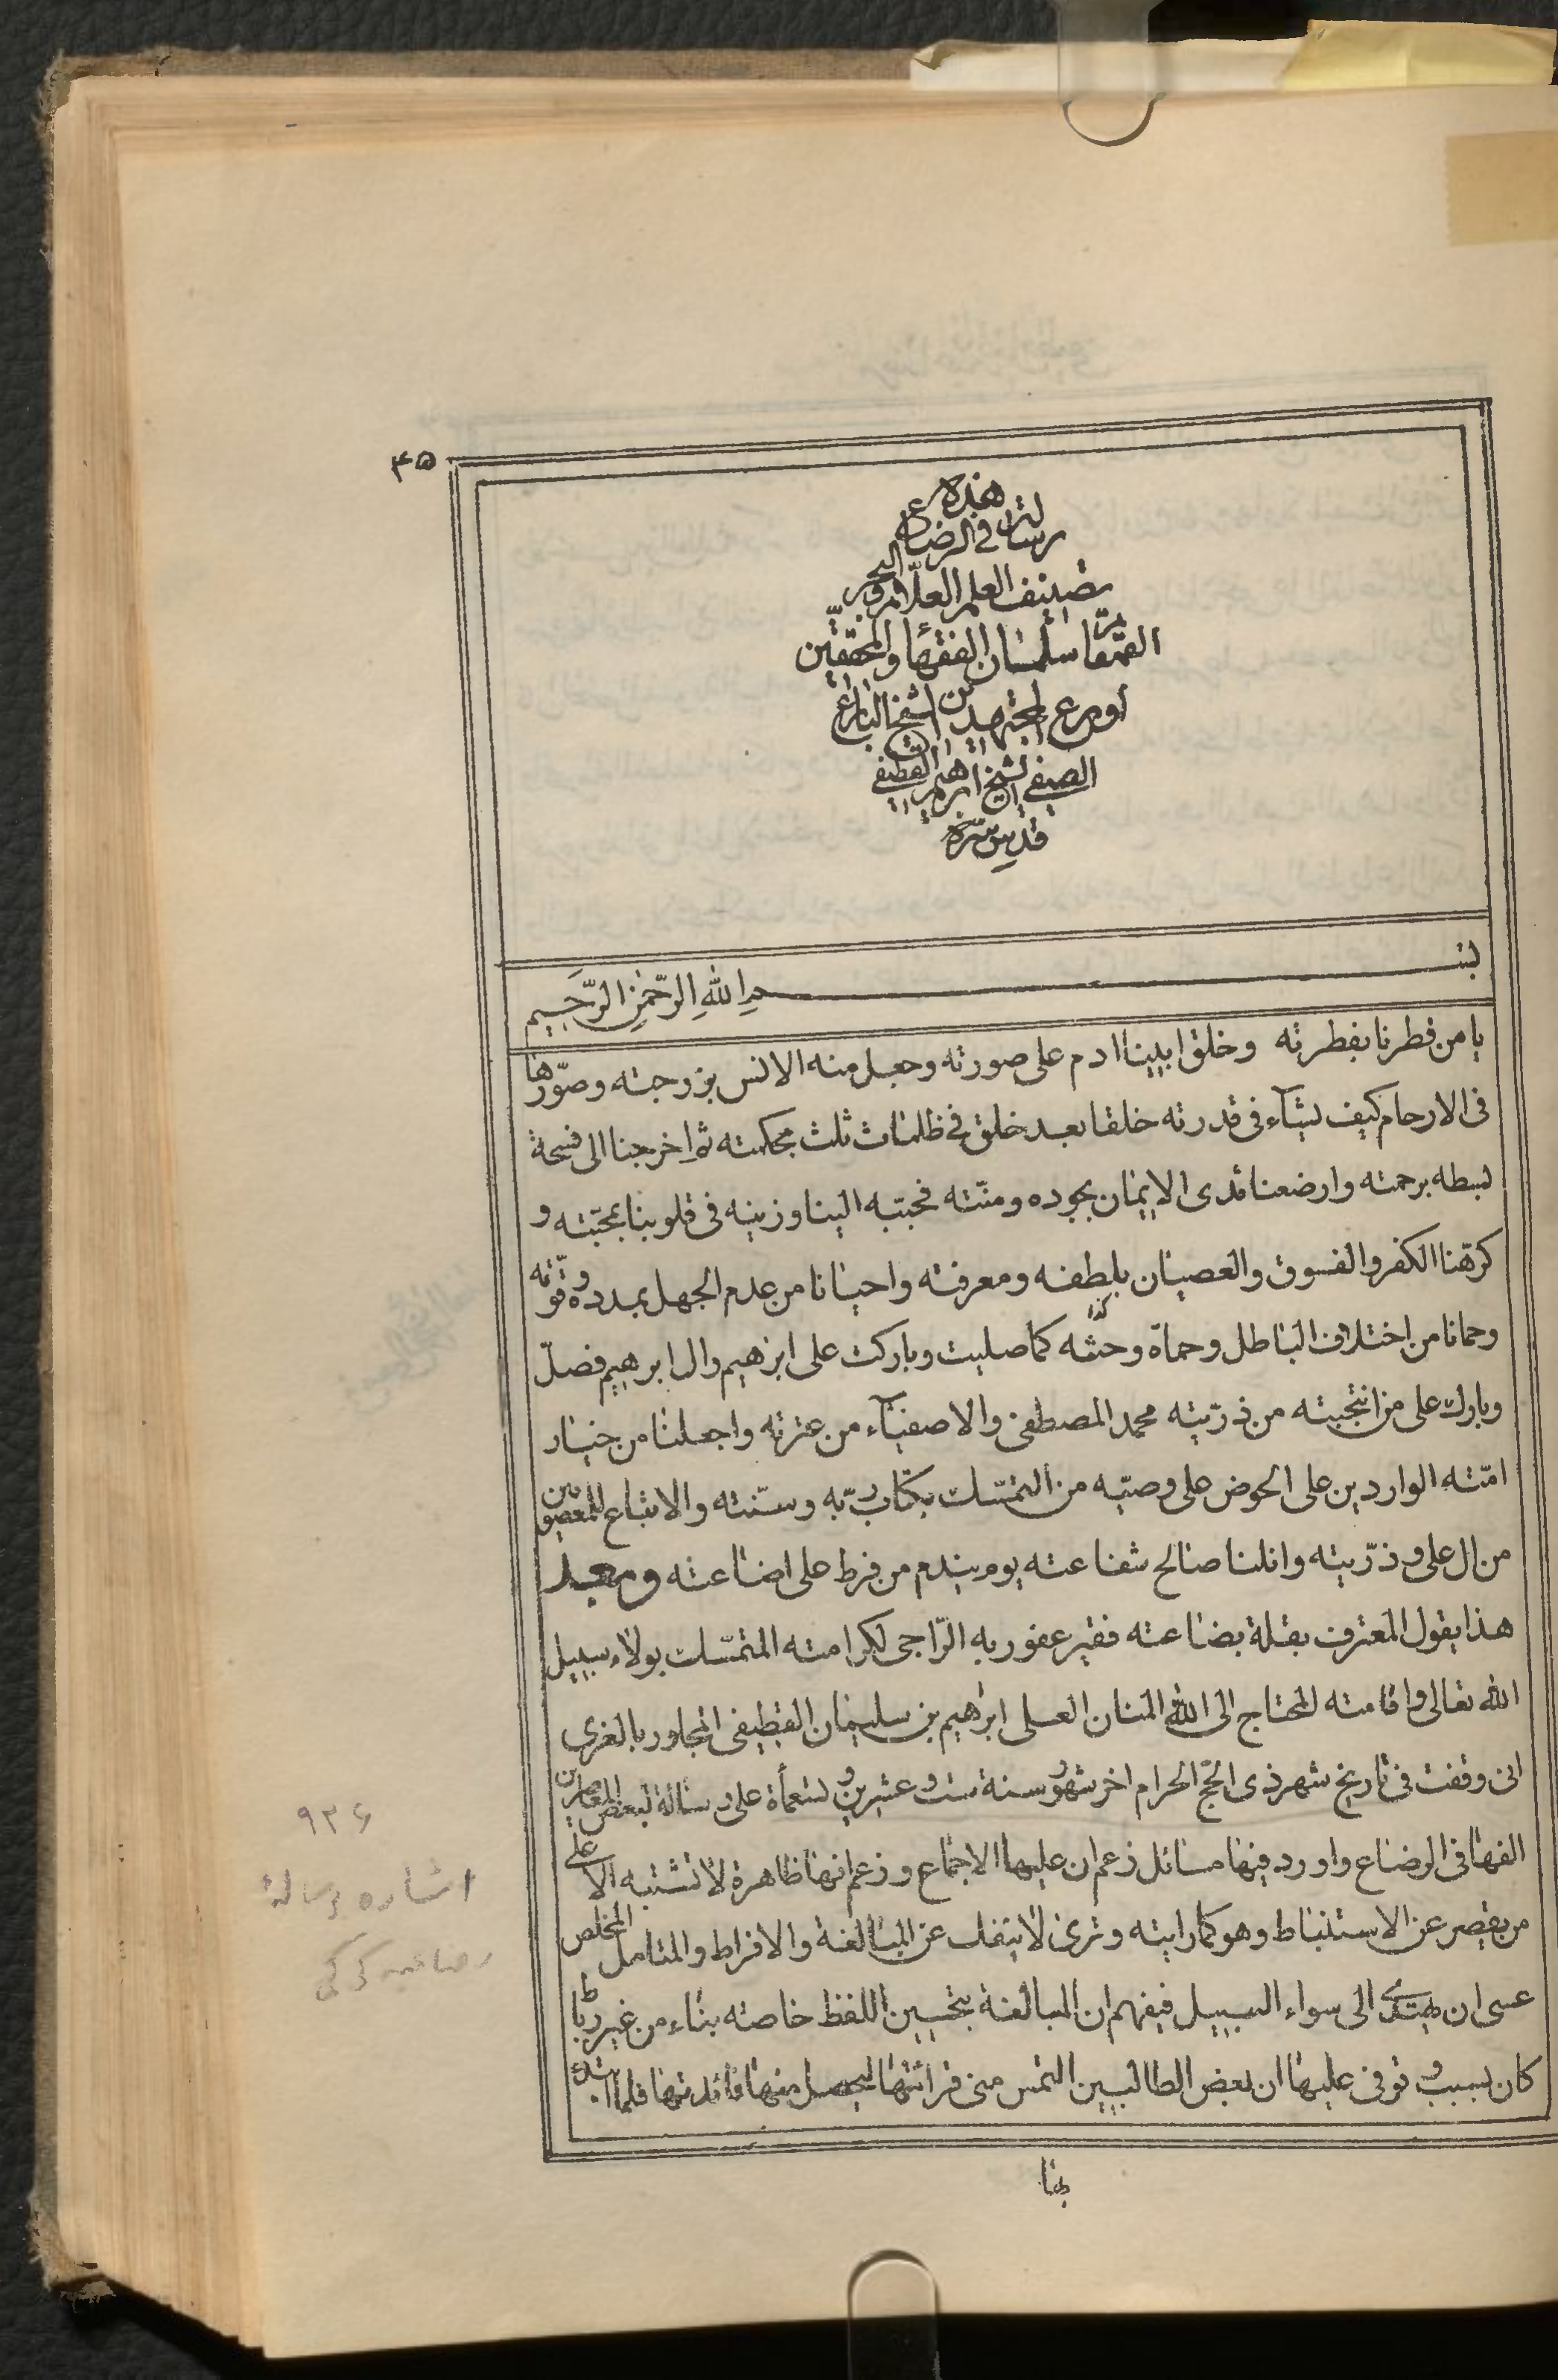 ۴۵
هذه
رسالة في الرضاع
تصنيف العلم العلّام والبحر
القمقام سلطان الفقهاء والمحققين
أورع المجتهدين الشيخ البارع
الصفي الشيخ ابرهيم القطيفي
قدس سره
بسم الله الرحمن الرحيم
يا من فطرنا بفطرته وخلق ابينا ادم على صورته وجعل منه الانس بزوجته وصوّرها
فى الارحام كيف يشاء فى قدرته خلقا بعد خلق فى ظلمات ثلث بحكمته ثم اخرجنا الى فسحة
بسطه برحمته وارضعنا ثدى الايمان بجوده ومنّته فحببه الينا وزينه فى قلوبنا بمحبّته و
كرّهنا الكفر والفسوق والعصيان بلطفه ومعرفته واحيانا من عدم الجهل بمدده وقوّته
وحمانا من اختلاف الباطل وحماة وحثه كذا كما صليت وباركت على ابرهيم وال ابرهيم فصلّ
وبارك على من انتجبته من ذرّيته محمد المصطفى والاصفياء من عترته واجعلنا من خيار
امّته الواردين على الحوض على وصيّه من التمسّك بكتاب ربّه وسنّته والاتباع للمعصومين
من ال على وذرّيته وانلنا صالح شفاعته يوم يندم من فرط على اضاعته وبعد
هذا يقول المعترف بقلة بضاعته فقير عفو ربه الرّاجى لكرامته المتمسّك بولاء سبيل
الله تعالى واقامته المحتاج الى الله المنان العلى ابرهيم بن سليمان القطيفى المجاور بالغرى
انى وقفت فى تاريخ شهر ذى الحجّ الحرام اخر شهور سنة ست وعشرين وتسعمأة على رسالة لبعض المعاصرين
الفها فى الرضاع واورد فيها مسائل زعم ان عليها الاجماع وزعم انها ظاهرة لا تشتبه الا على
من يقصر عن الاستنباط وهو كما رايته وترى لا ينفك عن المبالغة والافراط والمتامل المخلص
عسى ان يهتدى الى سواء السبيل فيفهم ان المبالغة بتحسين اللفظ خاصته بناء من غير رباط
كان بسبب وقوفى عليها ان بعض الطالبين التمس منى قرائتها ليحصل منها فائدتها فلما ابتدء
بها
۹۲۶
اشاره برسالهٔ
رضاعیه کرکی